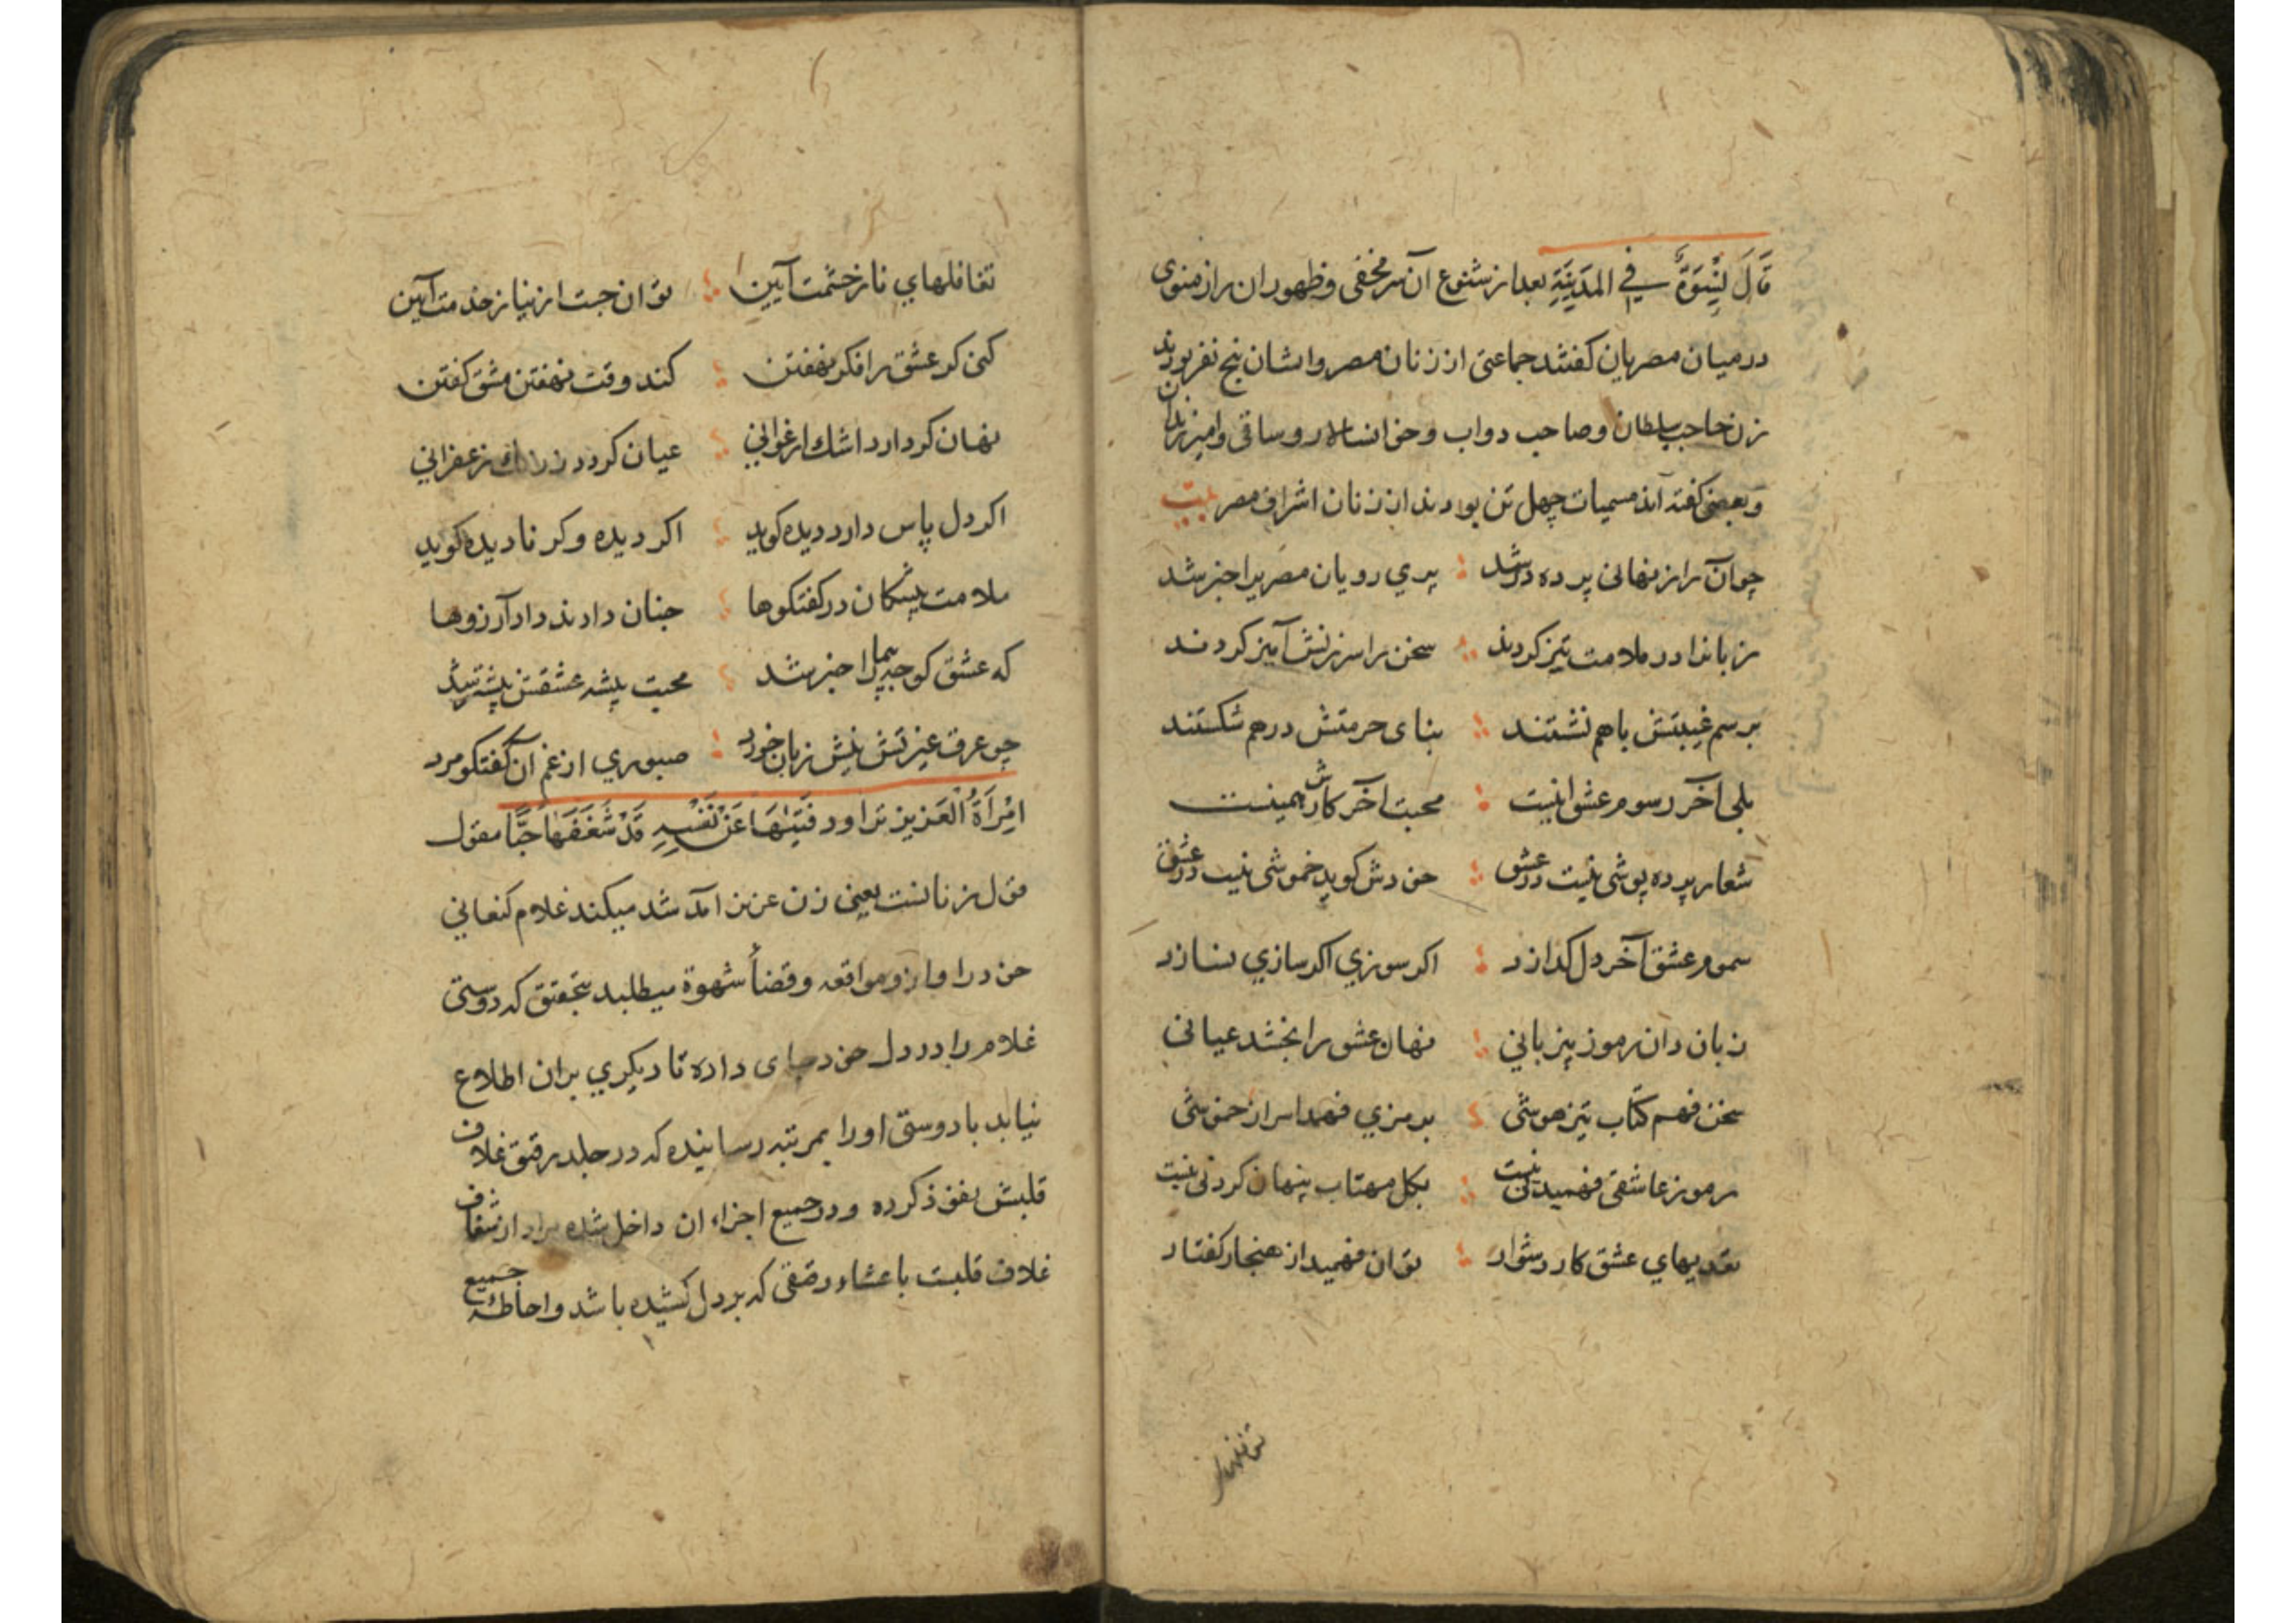 قَالَ نِسْوَةٌ فِي المَدِينَةِ بعد از شنوع آن سر مخفی و ظهور ان راز منوی
در میان مصریان کفتند جماعتی از زنان مصر و ایشان پنج نفر بودند
زن حاجب سلطان و صاحب دواب و خوانسالار و ساقی و امیر زندان
و بعضی کفته اند مسمیات چهل تن بودند از زنان اشراف مصر بیت
چو آن راز نهانی پرده در شد ؛ پري رویان مصر یرا خبر شد
زبانرا در ملامت تیز کردند ؛ سخن را سرزنش آمیز کردند
برسم غیبتش باهم نشستند ؛ بنای حرمتش درهم شکستند
بلی آخر رسوم عشق اینست ؛ محبت آخر کارش همینست
شعار پرده پوشی نیست در عشق ؛ خودش کوید خموشی نیست در عشق
سموم عشق آخر دل کدازد ؛ اکر سوزي اکر سازي نسازد
زبان دان رموز بیزباني ؛ نهان عشق را بخشد عیانی
سخن فهم کتاب تیزهوشی ؛ برمزي فهمد اسرار خموشی
رموز عاشقی فهمیدنی نیست ؛ بکل مهتاب پنهان کردنی نیست
تعدیهاي عشق کار دشوار ؛ توان فهمید از هنجار کفتار
تغافلهاي ناز خشمت آیین ؛ توان جست از نیاز خدمت آیین
کنی کر عشق را فکر نهفتن ؛ کند وقت نهفتن مشق کفتن
نهان کر دارد اشك ارغواني ؛ عیان کردد ز رنك زعفراني
اکر دل پاس دارد دیده کوید ؛ اکر دیده وکر نادیده کوید
ملامت پیشکان در کفتکوها ؛ چنان دادند داد آرزوها
که عشق کوچه پیما را خبر شد ؛ محبت پیشه عشقش پیشتر شد
چو عرق غیرتش نیش زبان خورد ؛ صبوري از غم آن کفتکو مرد
امْرَأَةُ الْعَزِيزِ تراود فَتَيٰهَا عَنْ نَفْسِهِ قَدْ شَغَفَهَا حُبًّا مقول
قول زنانست یعنی زن عزیز آمد شد میکند غلام کنعاني
خود را و ازو مواقعه و قضأ شهوة میطلبد بتحقیق که دوستی
غلام را در دل خود جای داده تا دیکري بران اطلاع
نیابد یا دوستی او را بمرتبه رسانیده که در جلد رقیق غلاف
قلبش نفوذ کرده و در جمیع اجزاء ان داخل شده مراد از شغاف
غلاف قلبست یا غشاء رقیقی که بر دل کشیده باشد و احاطهٔ جمیع